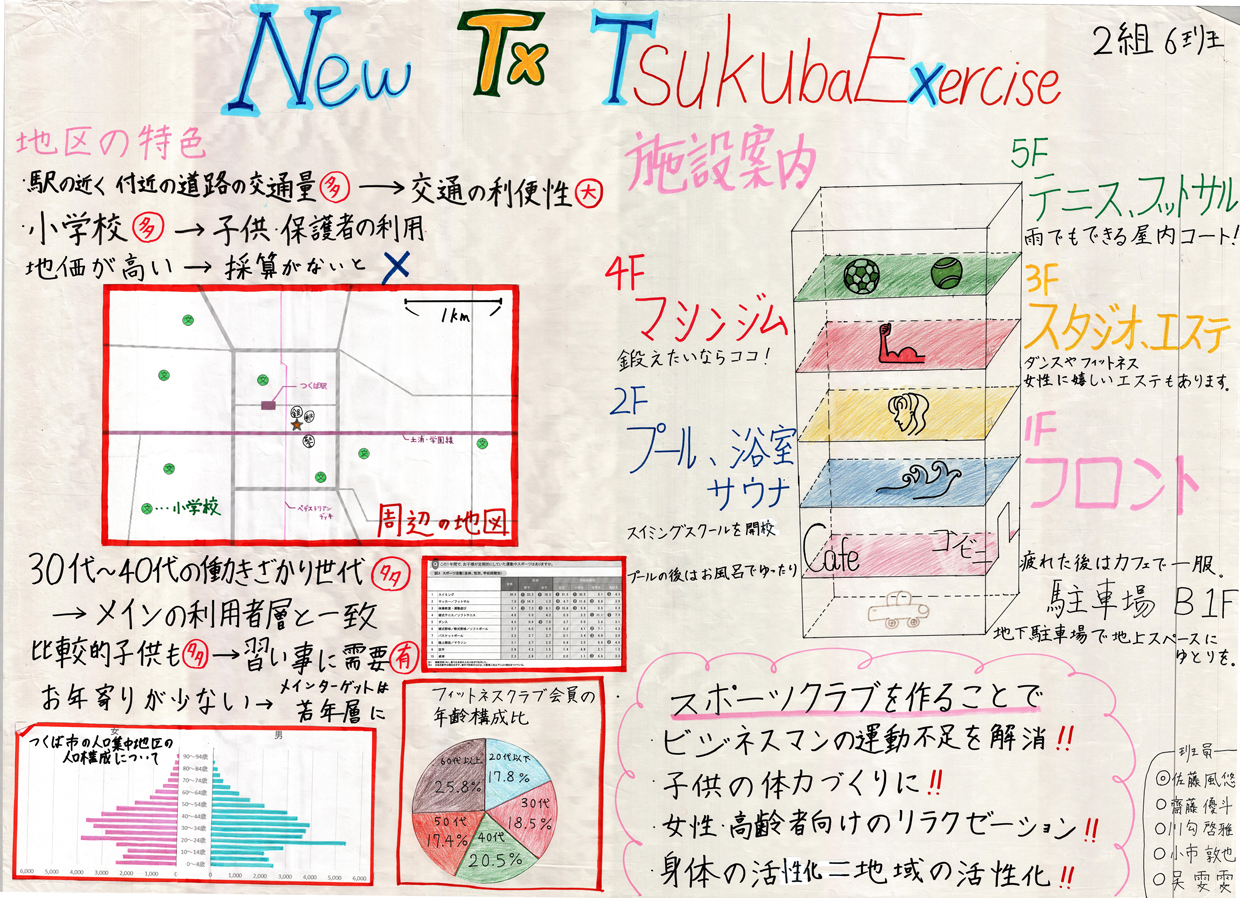 New Tx TsukubaExercise
2組 6班
地区の特色
・駅の近く 付近の道路の交通量 多 → 交通の利便性 大
・小学校 多 → 子供・保護者の利用
地価が高い → 採算がないと X
1km
つくば駅
土浦・学園線
ペデストリアンデッキ
文…小学校
周辺の地図
30代~40代の働きざかり世代 多
→ メインの利用者層と一致
比較的子供も 多 → 習い事に需要 有
お年寄りが少ない → メインターゲットは
若年層に
女
男
つくば市の人口集中地区の
人口構成について
90~94歳
80~84歳
70~74歳
60~64歳
50~54歳
40~44歳
30~34歳
20~24歳
10~14歳
0~4歳
6,000 5,000 4,000 3,000 2,000 1,000 0 0 1,000 2,000 3,000 4,000 5,000 6,000
フィットネスクラブ会員の
年齢構成比
60代以上
25.8%
20代以下
17.8%
30代
18.5%
40代
20.5%
50代
17.4%
施設案内
5F
テニス、フットサル
雨でもできる屋内コート!
4F
マシンジム
鍛えたいならココ!
3F
スタジオ、エステ
ダンスやフィットネス
女性に嬉しいエステもあります。
2F
プール、浴室
サウナ
スイミングスクールを開校
プールの後はお風呂でゆったり
1F
フロント
Cafe
コンビニ
疲れた後はカフェで一服。
駐車場 B1F
地下駐車場で地上スペースに
ゆとりを。
スポーツクラブを作ることで
・ビジネスマンの運動不足を解消!!
・子供の体力づくりに!!
・女性・高齢者向けのリラクゼーション!!
・身体の活性化=地域の活性化!!
班員
◎佐藤風悠
○齋藤優斗
○川勾啓雅
○小市敦也
○呉雯雯